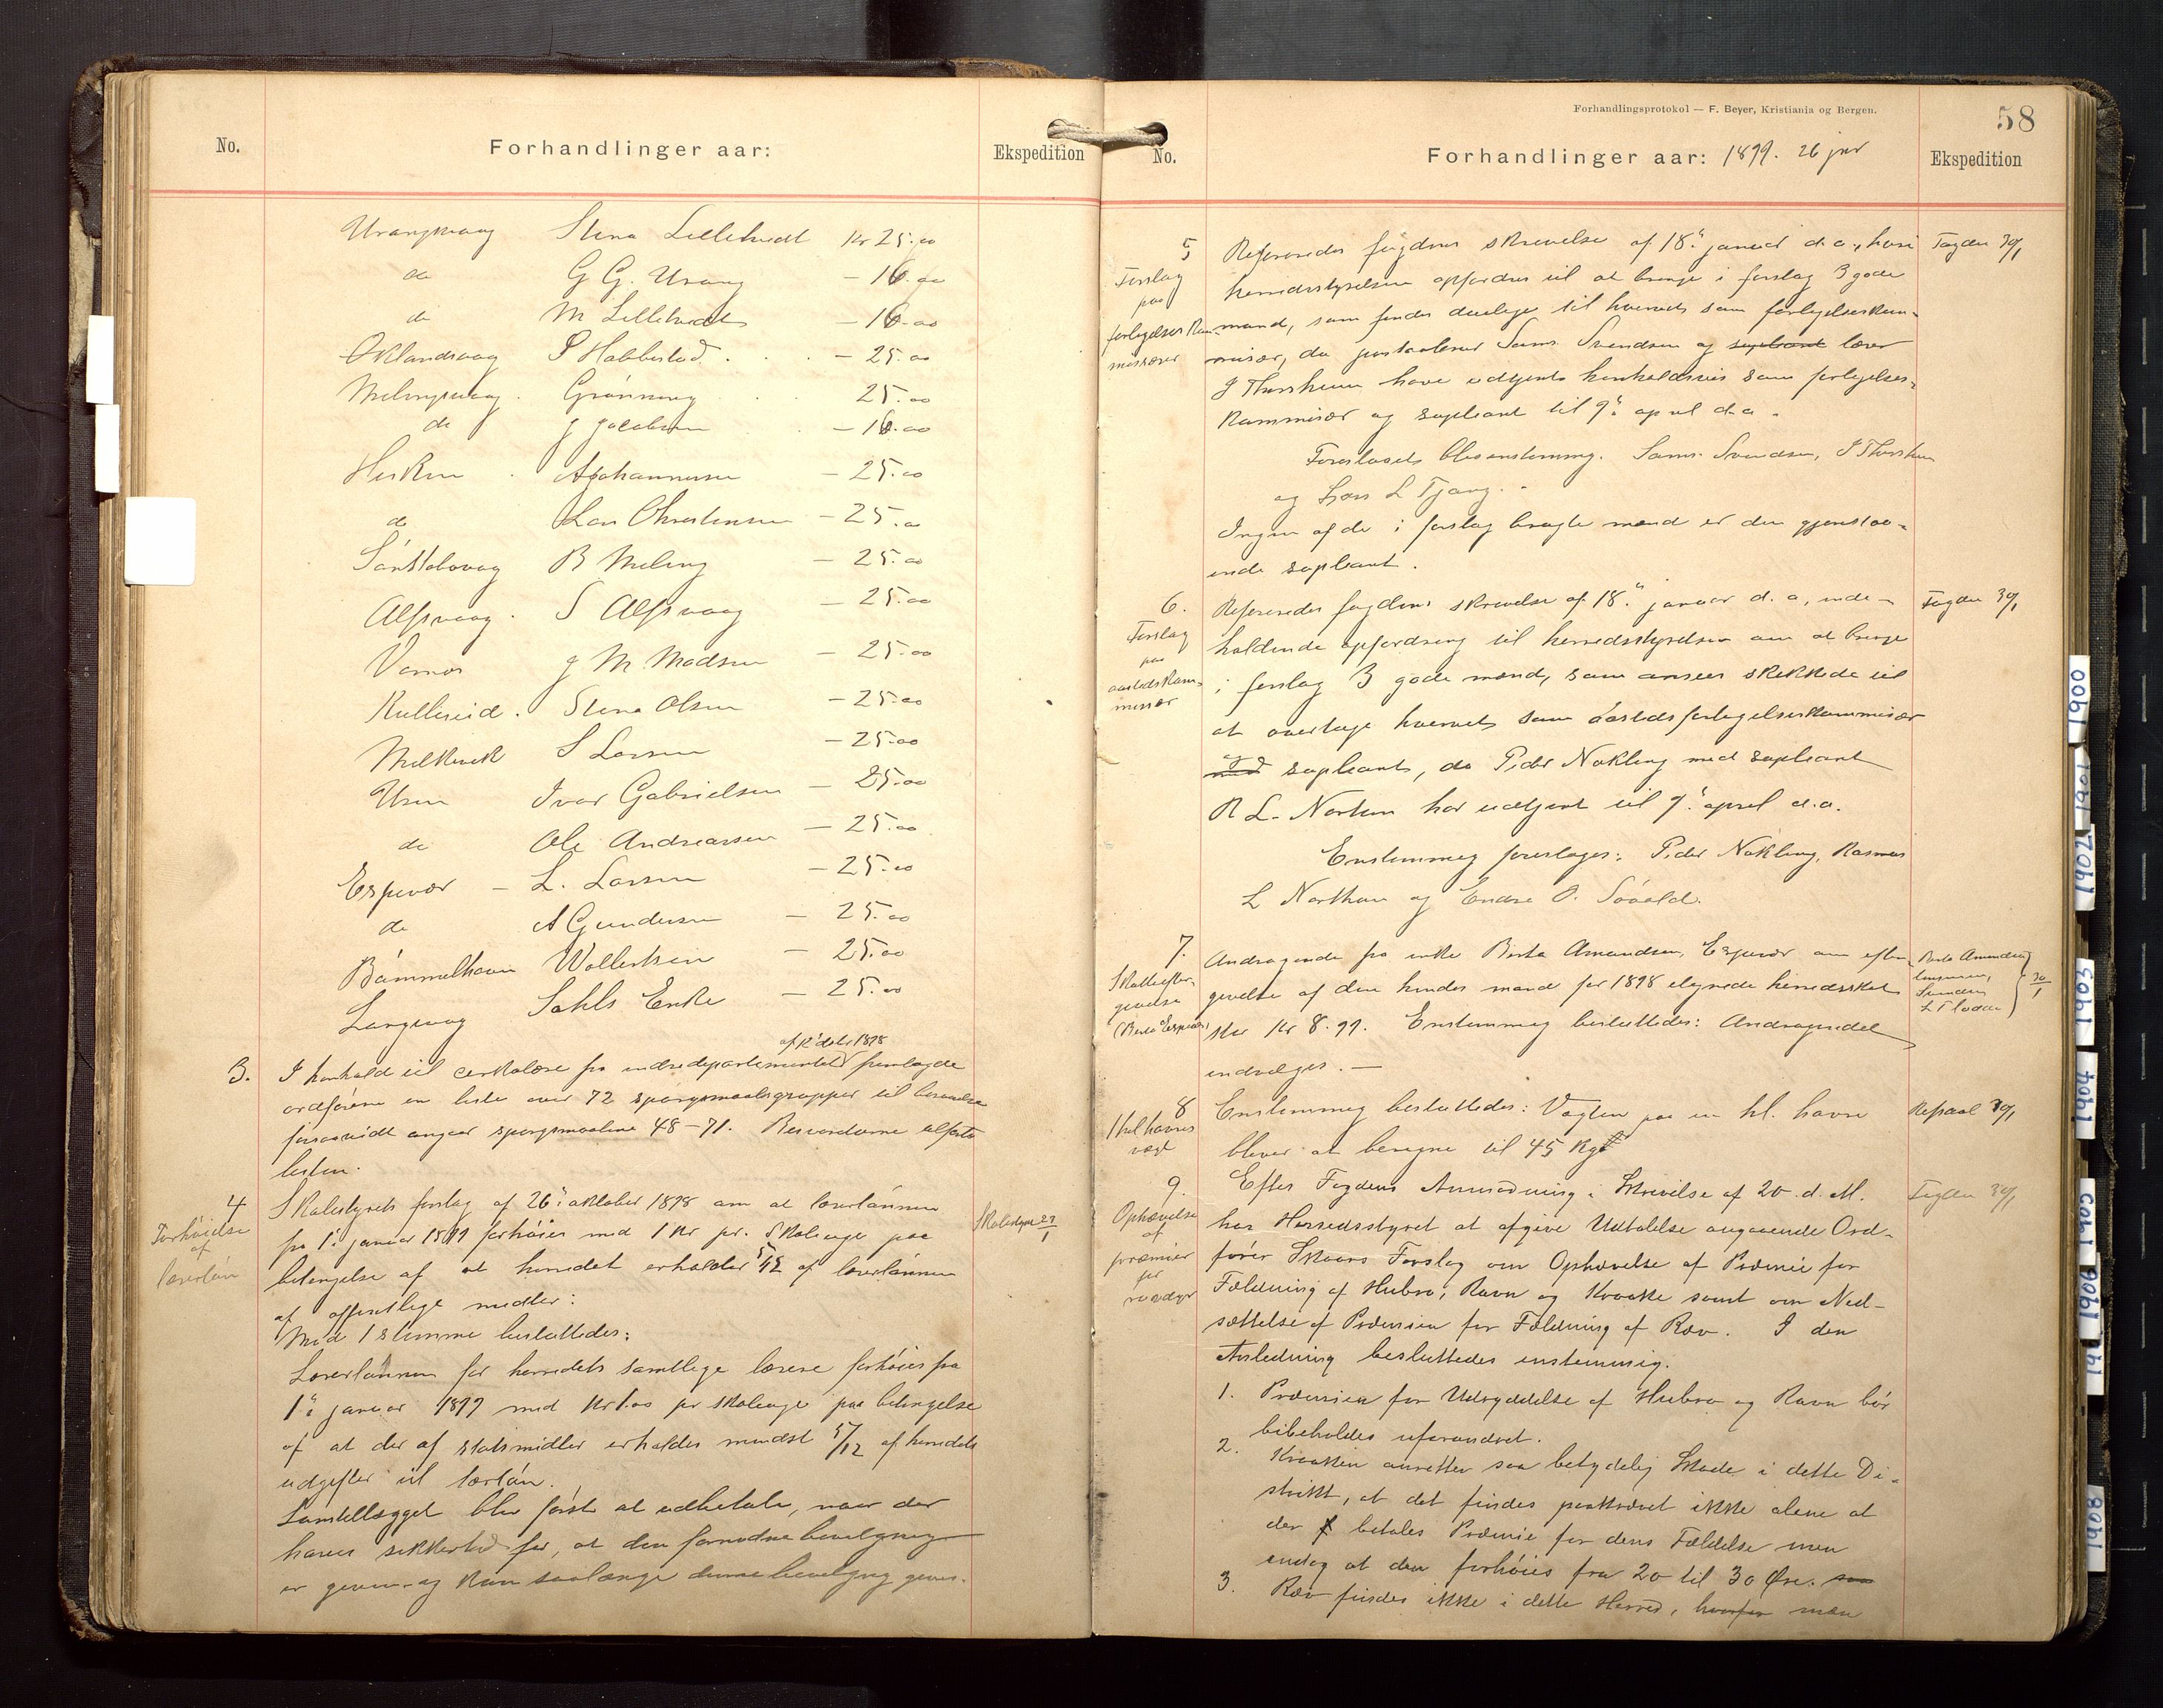 No.
Forhandlinger aar:
Ekspedition
Urangsvaag Stena Lilletvedt Kr 25.00
do G G. Urang — 16.00
do M Lilletvedt — 16.00
Øklandsvaag P Habbestad — 25.00
Melingsvaag Grønning 25.00
do J Jacobsen — 16.00
Hisken A Johannesen — 25.00
do Lars Christensen — 25.00
B Meling — 25.00
Alfsvaag S Alfsvaag — 25.00
Vornes J M. Madsen — 25.00
Kulleseid Stena Olsen — 25.00
Melkevik S Larsen — 25.00
Uren Ivar Gabrielsen — 25.00
do Ole Andreassen — 25.00
Espevær — L. Larsen — 25.00
do A Gundersen — 25.00
Bømmelhavn Wollertsen — 25.00
Langevaag Sahls Enke — 25.00
3. I henhold til cirkulære fra indredepartementet af 12' dcbr 1898 fremlagde
ordføreren en liste over 72 spørgsmaalsgrupper til besvarelse
forsaavidt angaar spørgsmaalene 48–71. Besvarelserne
listen.
4 Forhøielse af lærerløn
Skolestyrets forslag af 26': oktober 1898 om at lærerlønnen
fra 1': januar 1899 forhøies med 1 Kr pr. Skoleuge paa
betingelse af at herredet erholder 5/12 af lærerlønnen
af offentlige midler:
Med 1 stemme besluttedes:
Lærerlønnen for herredets samtlige lærere forhøies fra
1': januar 1899 med Kr 1.00 pr skoleuge paa betingelse
af at der af statsmidler erholdes mindst 5/12 af herredets
udgifter til lærløn.
Løntillægget blir først at udbetale, naar der
haves sikkerhed for, at den fornødne bevilgning
er given og kun saalænge denne bevilgning gives.
Skolestyret 27/1
Forhandlingsprotokol — F. Beyer, Kristiania og Bergen.
58
No.
Forhandlinger aar: 1899. 26 jnr
Ekspedition
5 Forslag paa forligelseskommissærer
Refereredes fogdens skrivelse af 18': januar d.a., hvori
herredsstyrelsen opfordres til at bringe i forslag 3 gode
mænd, som findes duelige til hvervet som forligelseskom-
misær, da Sams. Svendsen og suppleant lærer
J Thorsheim have udtjent henholdsvis som forligelses-
kommisær og supleant til 9': april d.a.
Foresloges Sams. Svendsen, J Thorsheim
og Lars L Tjong.
Ingen af de i forslag bragte mænd er den gjenstaa-
ende supleant.
Fogden 30/1
6. Forslag paa aastedskommissær
Refereredes fogdens skrivelse af 18': januar d. a, inde-
holdende opfordring til herredsstyrelsen om at bringe
i forslag 3 gode mænd, som ansees skikkede til
at overtage hvervet som aastedsforligelseskommissær
med og supleant, da Peder Nøkling med supleant
R L. Northun har udtjent til 9': april d.a.
Enstemmig foresloges: Peder Nøkling, Rasmus
L Northun og Endre O. Søvold.
Fogden 30/1
7. Skatteeftergivelse (Berta Espevær)
Andragende fra enke Berta Amundsen, Espevær om efter-
givelse af den hendes mand for 1898 ilignede herredsskat
stor Kr 8.99. Enstemmig besluttedes: Andragendet
indvilges. —
Berta Amundsen
30/1
8 1 hl havres vægt
Enstemmig besluttedes: Vægten paa en hl. havre
bliver at beregne til 45 Kg
30/1
9. Ophævelse af præmier for rovdyr
Efter Fogdens Anmodning i Skrivelse af 20. d. M.
har Herredsstyret at afgive Udtalelse angaaende Ord-
fører Skaars Forslag om Ophævelse af Præmie for
Fældning af Hubro, Ravn og Kraake samt om Ned-
sættelse af Præmien for Fældning af Ræv. I den
Anledning besluttedes enstemmig.
1. Præmien for Udryddelse af Hubro og Ravn bør
bibeholdes uforandret.
2. Kraaken anretter saa betydelig Skade i dette Di-
strikt, at det findes paakrævet ikke alene at
der betales Præmie for dens Fældelse men
endog at den forhøies fra 20 til 30 Øre.
3. Ræv findes ikke i dette Herred, hvorfor man
Fogden 30/1
1900
1901
1902
1903
1904
1905
1906
1908